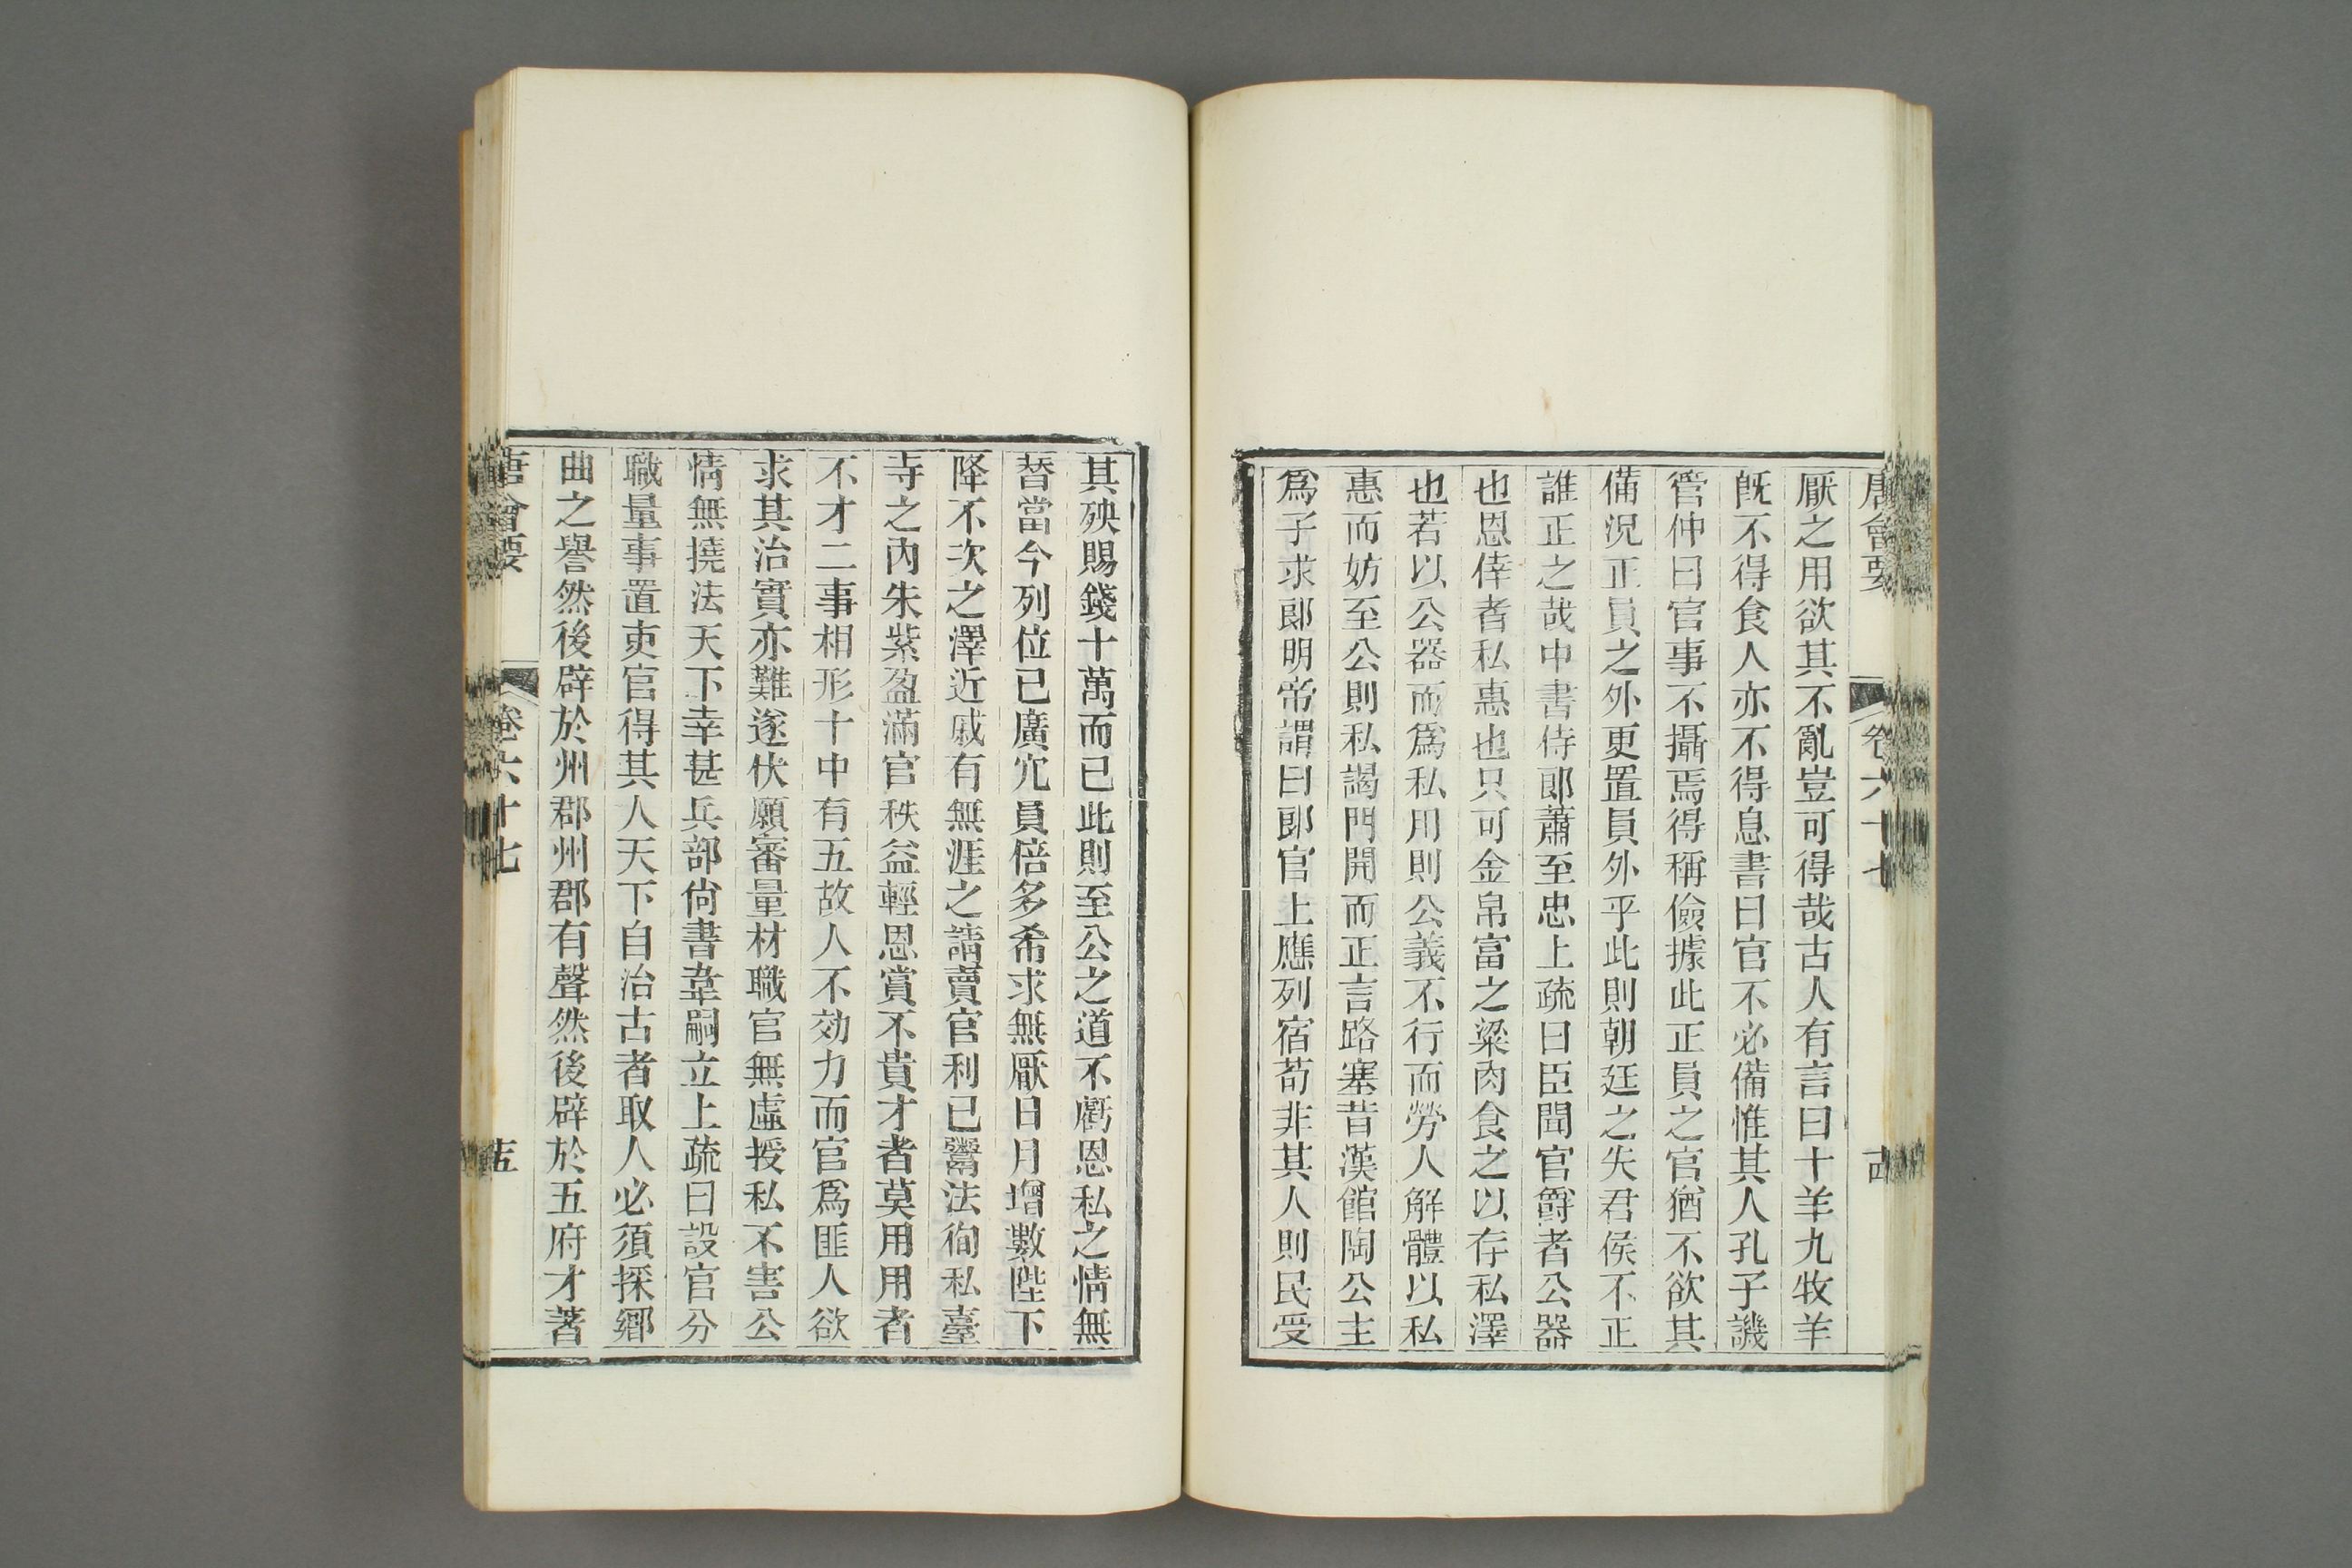 唐會要 卷六十七 十四
厭之用欲其不亂豈可得哉古人有言曰十羊九牧羊
旣不得食人亦不得息書曰官不必備惟其人孔子譏
管仲曰官事不攝焉得稱儉據此正員之官猶不欲其
備況正員之外更置員外乎此則朝廷之失君侯不正
誰正之哉中書侍郞蕭至忠上疏曰臣聞官爵者公器
也恩倖者私惠也只可金帛富之粱肉食之以存私澤
也若以公器而爲私用則公義不行而勞人解體以私
惠而妨至公則私謁門開而正言路塞昔漢館陶公主
爲子求郞明帝謂曰郞官上應列宿苟非其人則民受
其殃賜錢十萬而已此則至公之道不虧恩私之情無
替當今列位已廣宂員倍多希求無厭日月增數陛下
降不次之澤近戚有無涯之請賣官利已鬻法徇私臺
寺之內朱紫盈滿官秩益輕恩賞不貴才者莫用用者
不才二事相形十中有五故人不効力而官爲匪人欲
求其治實亦難遂伏願審量材職官無虛授私不害公
情無撓法天下幸甚兵部尙書韋嗣立上疏曰設官分
職量事置吏官得其人天下自治古者取人必須採鄉
曲之譽然後辟於州郡州郡有聲然後辟於五府才著
唐會要 卷六十七 十五